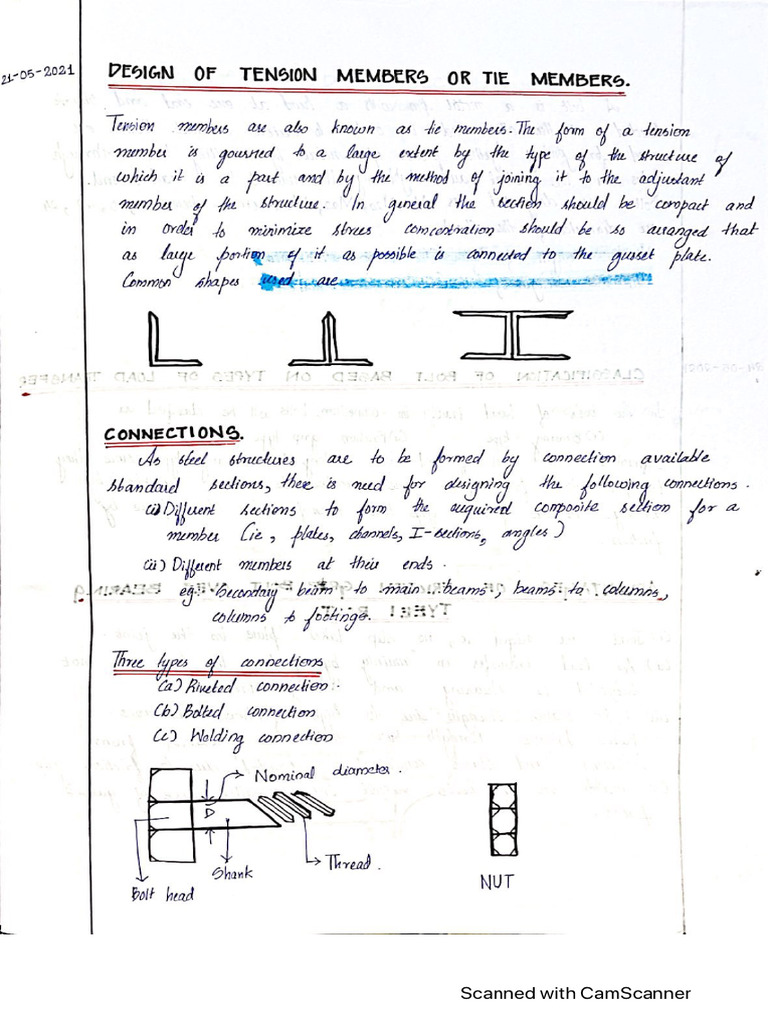 21-05-2021
DESIGN OF TENSION MEMBERS OR TIE MEMBERS.
Tension members are also known as tie members. The form of a tension
member is gourned to a large extent by the type of the structure of
which it is a part and by the method of joining it to the adjustant
member of the structure. In general the section should be compact and
in order to minimize stress concentration should be so arranged that
as large portion of it as possible is connected to the gusset plate.
Common shapes used are
CONNECTIONS.
As steel structures are to be formed by connection available
standard sections, there is need for designing the following connections.
(i) Different sections to form the acquired composite section for a
member (ie, plates, channels, I-sections, angles)
(ii) Different members at their ends.
eg:- Secondary beam to main beams, beams to columns,
columns to footings.
Three types of connections
(a) Riveted connection.
(b) Bolted connection
(c) Welding connection
Nominal diameter.
D
Thread.
Shank
Bolt head
NUT
Scanned with CamScanner